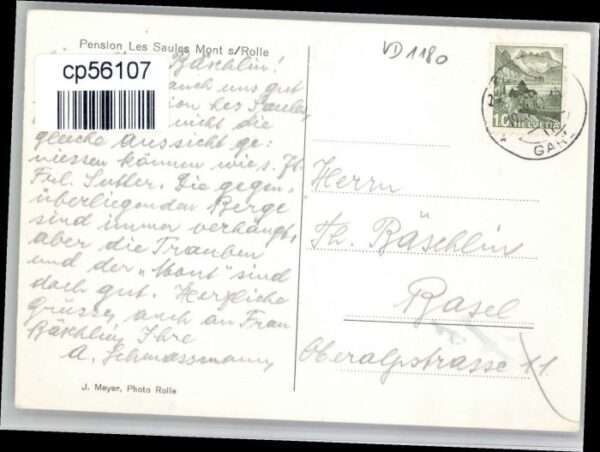 Pension Les Saules Mont s/Rolle
VD 1180
cp56107
Bäschlin!
auch uns gut
ion les Saules
nicht die
gleiche Aussicht ge:
niessen können wie z. B.
Frl. Sutter. Die gegen,
überliegenden Berge
sind immer verhängt,
aber die Trauben
und der „Mont" sind
doch gut. Herzliche
grüsse, auch an Frau
Bäschlin, Ihre
A. Schmassmann
Herrn
Th. Bäschlin
Basel
Oberalpstrasse 11
10
HELVETIA
GARE
J. Meyer, Photo Rolle